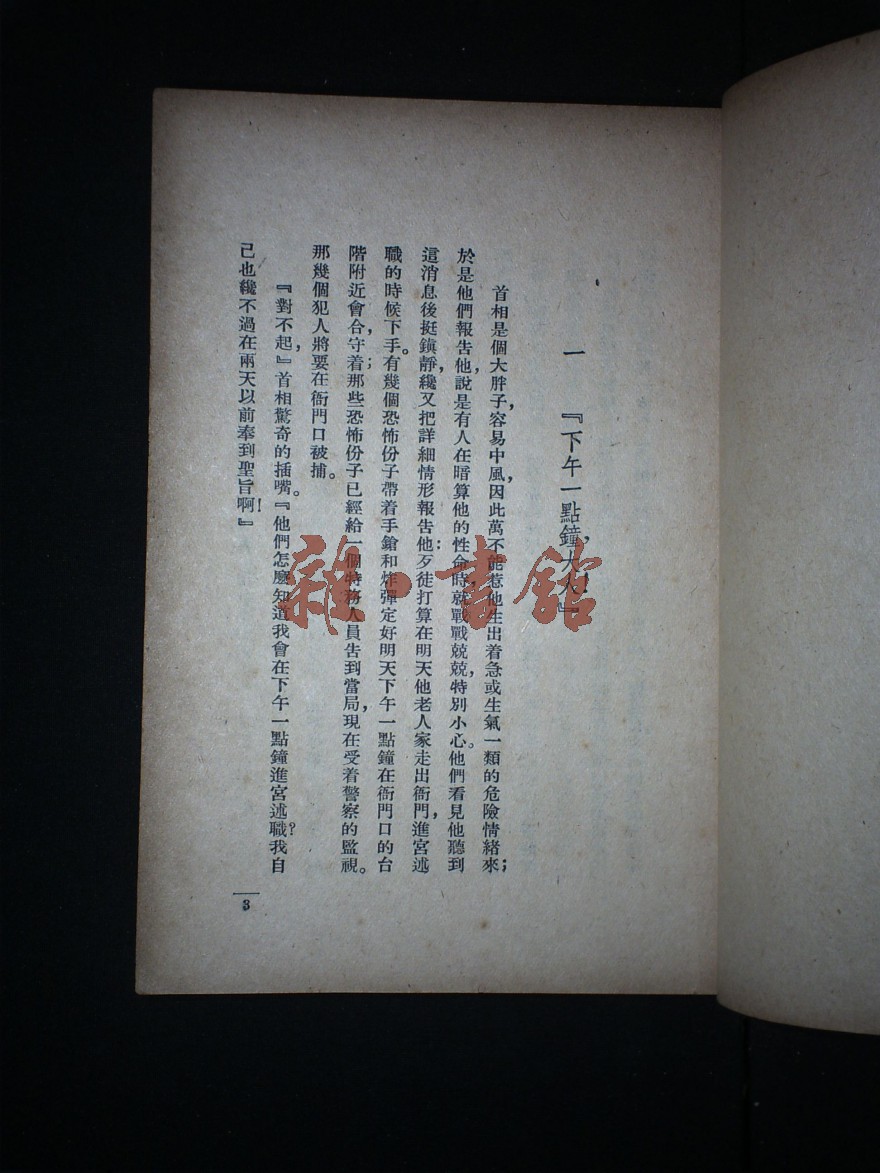 一 『下午一點鐘，大人！』
首相是個大胖子，容易中風，因此萬不能惹他生出着急或生氣一類的危險情緒來；
於是他們報告他，說是有人在暗算他的性命時，就戰戰兢兢，特別小心。他們看見他聽到
這消息後挺鎮靜，纔又把詳細情形報告他：歹徒打算在明天他老人家走出衙門，進宮述
職的時候下手。有幾個恐怖份子帶着手鎗和炸彈定好明天下午一點鐘在衙門口的台
階附近會合，守着；那些恐怖份子已經給一個特務人員告到當局，現在受着警察的監視。
那幾個犯人將要在衙門口被捕。
『對不起，』首相驚奇的插嘴。『他們怎麼知道我會在下午一點鐘進宮述職？我自
己也纔不過在兩天以前奉到聖旨啊！』
3
雜·書館